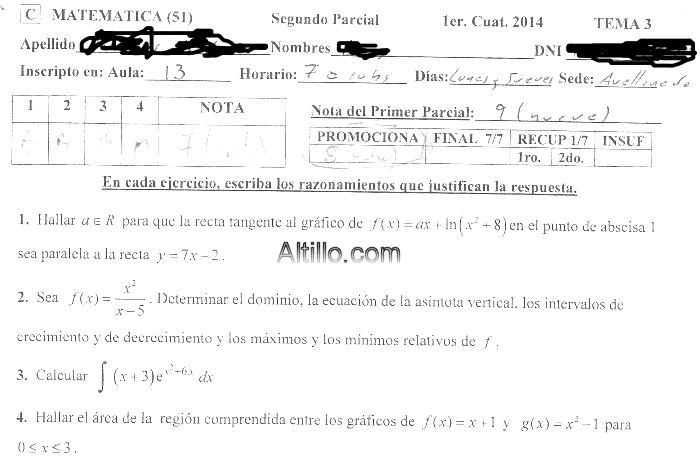 C MATEMATICA (51) Segundo Parcial 1er. Cuat. 2014 TEMA 3
Apellido Nombres DNI
Inscripto en: Aula: 13 Horario: 7 a 10hs Días: Lunes y Jueves Sede: Avellaneda
1 2 3 4 NOTA
Nota del Primer Parcial: 9 (nueve)
PROMOCIONA FINAL 7/7 RECUP 1/7 INSUF
1ro. 2do.
En cada ejercicio, escriba los razonamientos que justifican la respuesta.
1. Hallar a ∈ R para que la recta tangente al gráfico de f(x) = ax + ln(x² + 8) en el punto de abscisa 1
sea paralela a la recta y = 7x − 2.
Altillo.com
2. Sea f(x) = x²/(x − 5). Determinar el dominio, la ecuación de la asíntota vertical, los intervalos de
crecimiento y de decrecimiento y los máximos y los mínimos relativos de f.
3. Calcular ∫ (x + 3)e^(x²+6x) dx
4. Hallar el área de la región comprendida entre los gráficos de f(x) = x + 1 y g(x) = x² − 1 para
0 ≤ x ≤ 3.